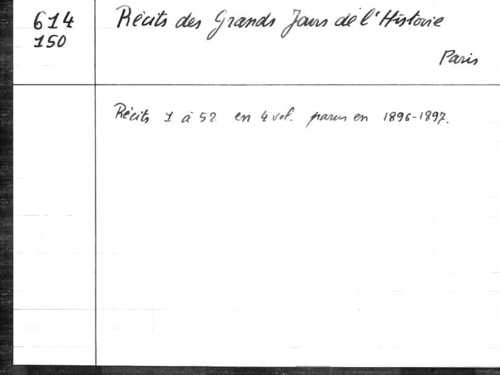 614
150
Récits des Grands Jours de l'Histoire
Paris
Récits 1 à 52 en 4 vol. parus en 1896-1897.